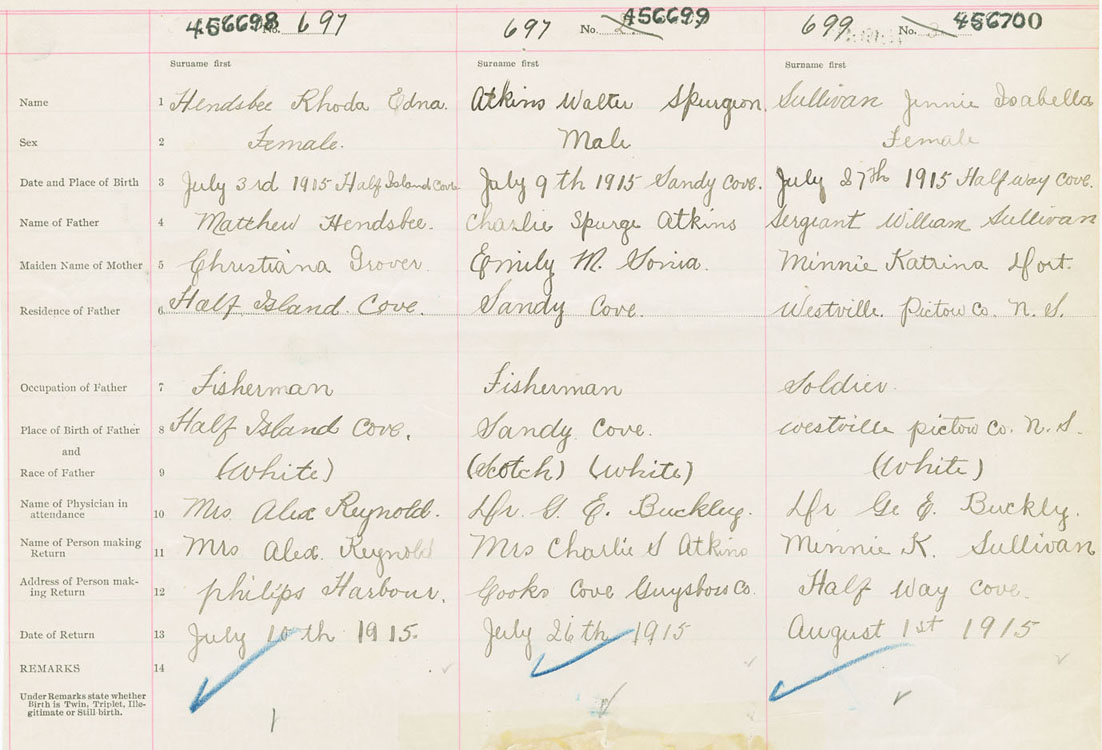 456698 No. 697 697 No. 2 456699 699 No. 3 456700
Surname first Surname first Surname first
Name 1 Hendsbee Rhoda Edna. Atkins Walter Spurgeon. Sullivan Jennie Isabella
Sex 2 Female. Male Female
Date and Place of Birth 3 July 3rd 1915 Half Island Cove July 9th 1915 Sandy Cove. July 27th 1915 Halfway Cove.
Name of Father 4 Matthew Hendsbee. Charlie Spurge Atkins Sergiant William Sullivan
Maiden Name of Mother 5 Christiana Grover. Emily M. Minnie Katrina Dort.
Residence of Father 6 Half Island Cove. Sandy Cove. Westville. Pictow Co. N. S.
Occupation of Father 7 Fisherman Fisherman Soldier.
Place of Birth of Father 8 Half Island Cove. Sandy Cove. Westville Pictow Co. N. S.
and
Race of Father 9 (White) (Scotch) (White) (White)
Name of Physician in
attendance 10 Mrs Alex Reynold. Dr. G. E. Buckley. Dr Ge E. Buckly.
Name of Person making
Return 11 Mrs Alex. Reynold Mrs Charlie S Atkins Minnie K. Sullivan
Address of Person mak-
ing Return 12 Philips Harbour. Cooks Cove Guysboro Co. Half Way Cove.
Date of Return 13 July 10th 1915. July 26th 1915 August 1st 1915
REMARKS 14
Under Remarks state whether
Birth is Twin, Triplet, Ille-
gitimate or Still birth.